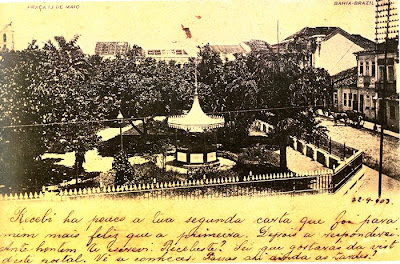 PRAÇA 13 DE MAIO
BAHIA-BRAZIL
22-4-903.
Recebi ha pouco a tua segunda carta que foi para
mim mais feliz que a primeira. Depois a responderei.
Ante-hontem te escrevi. Recebeste? Sei que gostarás da vista
deste postal. Vê a conheces? ahi ainda as tardes?